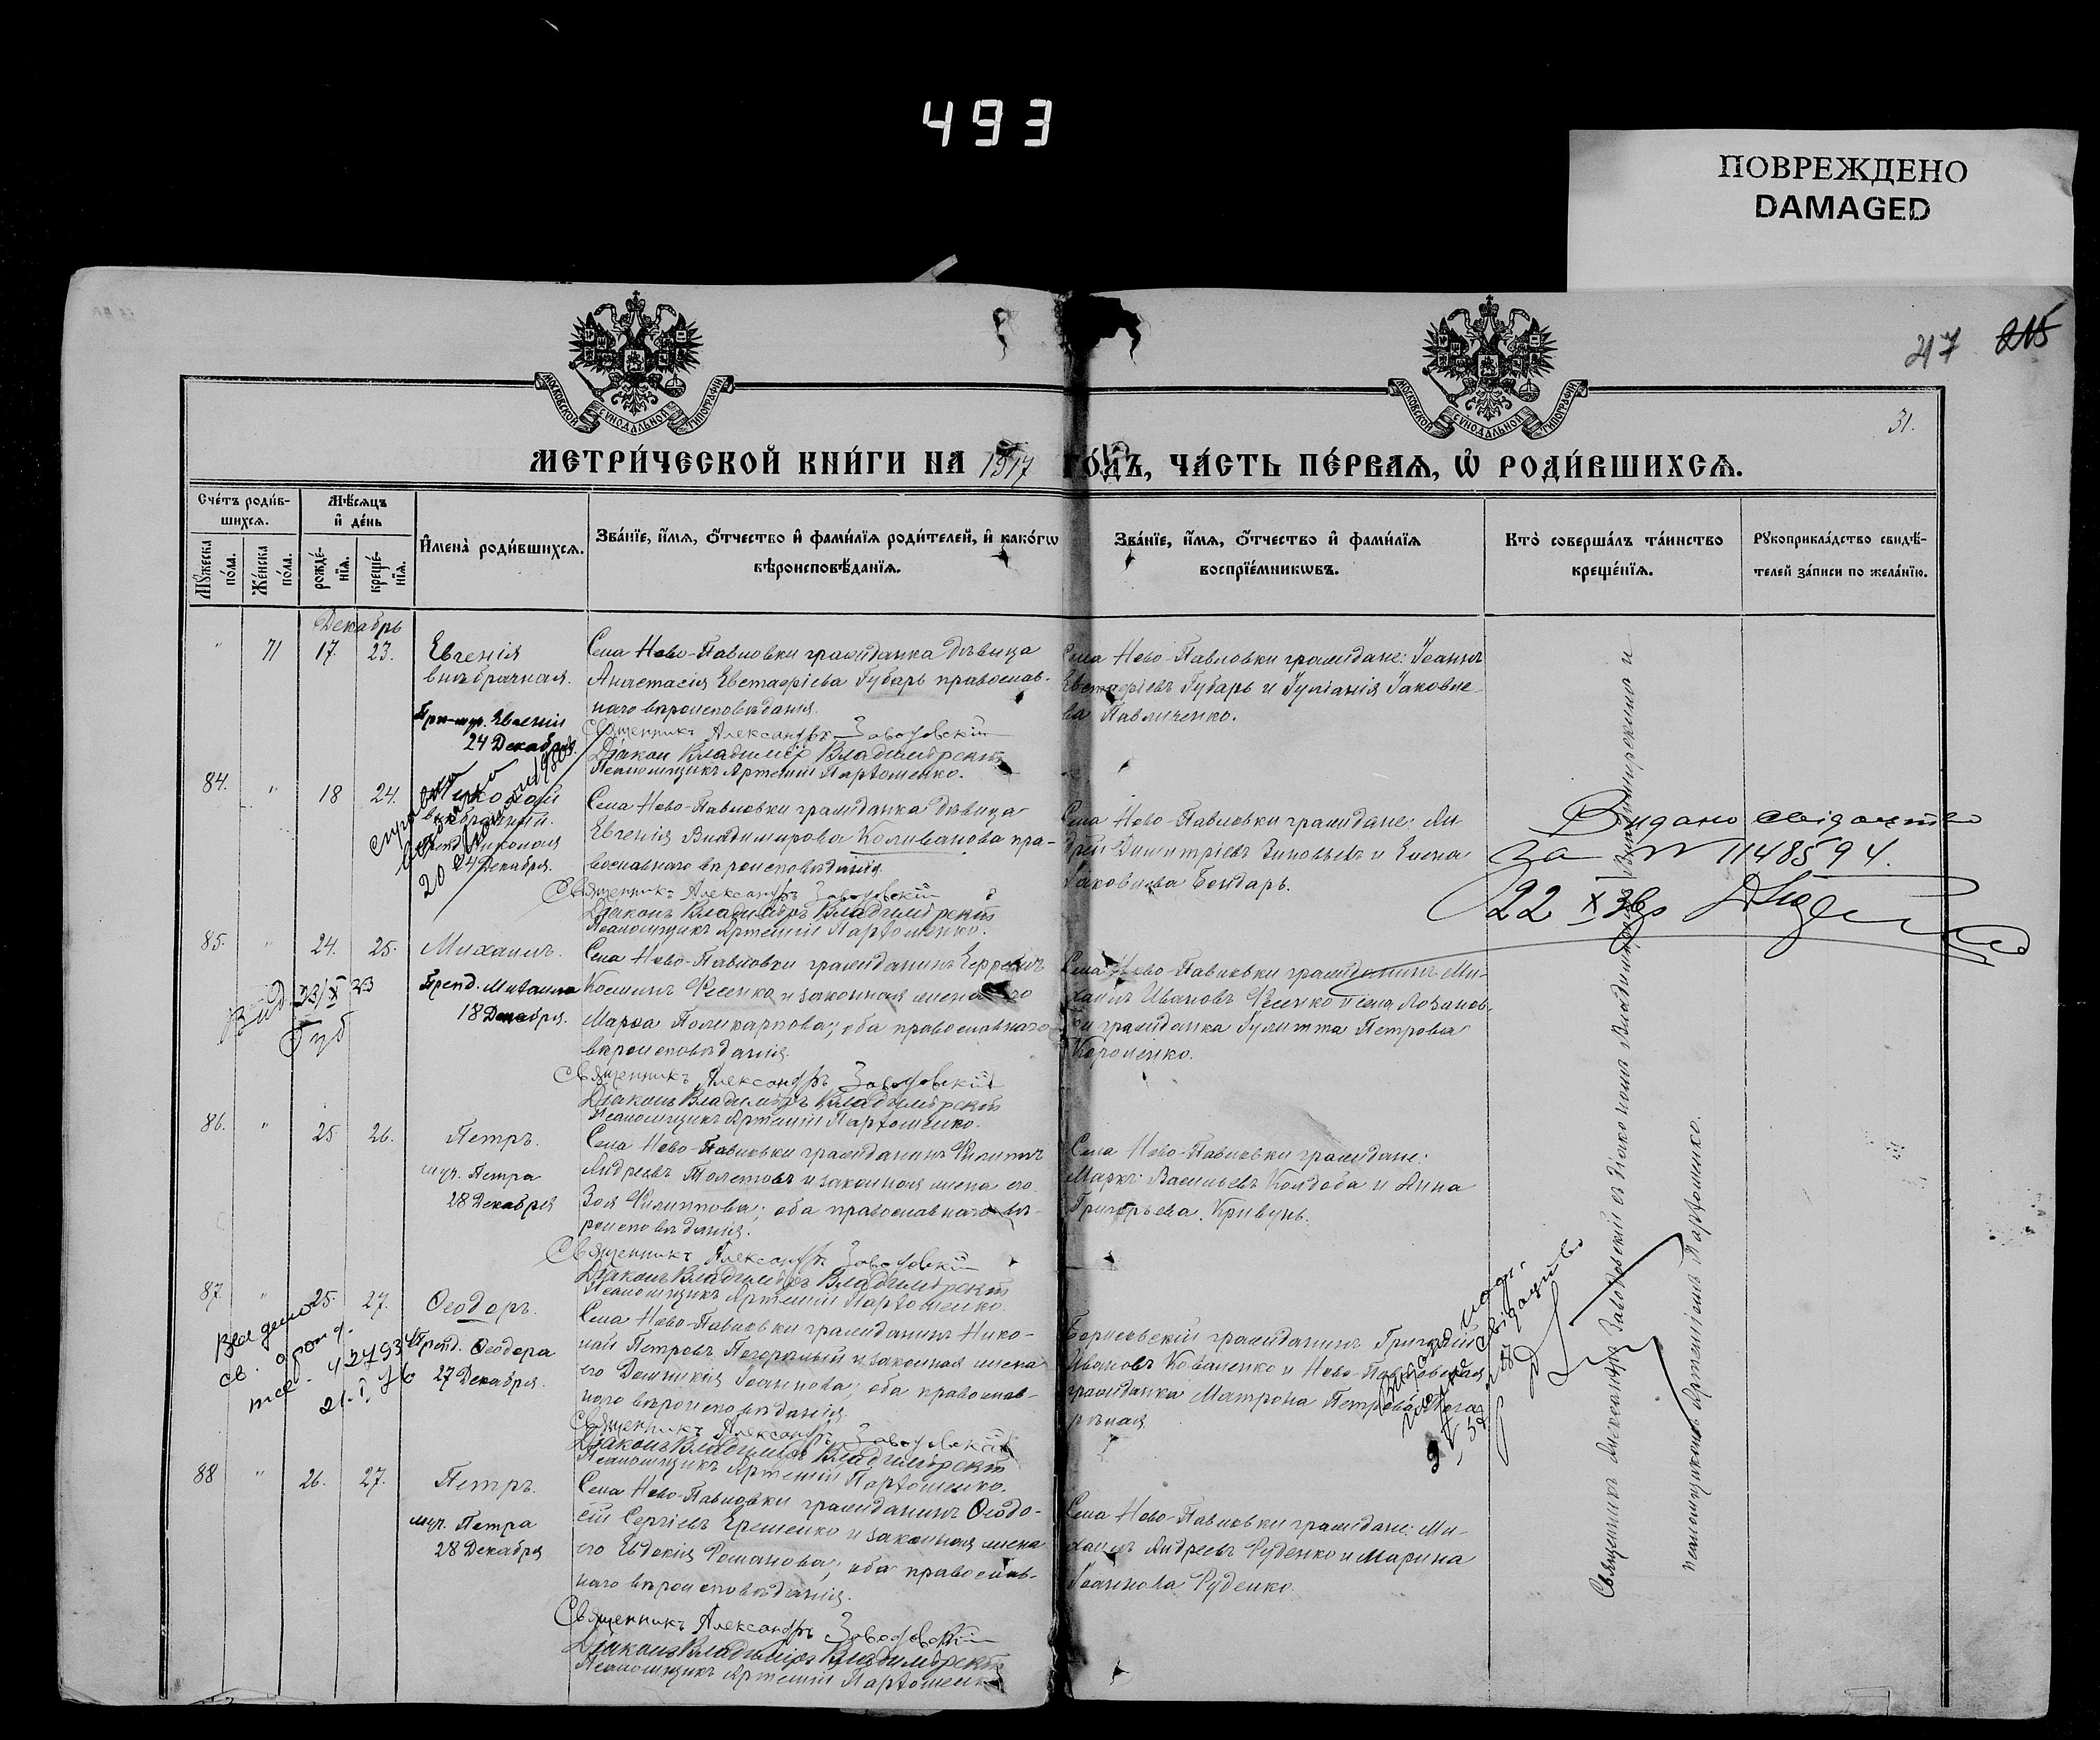 493
ПОВРЕЖДЕНО
DAMAGED
217 215
31.
МОСКОВСКОЙ СѴНОДАЛЬНОЙ ТИПОГРАФІИ
МОСКОВСКОЙ СѴНОДАЛЬНОЙ ТИПОГРАФІИ
МЕТРИ́ЧЕСКОЙ КНИ́ГИ НА 1917 ГО́ДЪ, ЧА́СТЬ ПЕ́РВАѦ, Ѽ РОДИ́ВШИХСѦ.
Сче́тъ роди́в-
шихсѧ.
Мꙋ́жеска по́ла.
Же́нска по́ла.
Мѣ́сѧцъ
и҆ де́нь
рожде́-
нїѧ.
креще́-
нїѧ.
И҆мена̀ роди́вшихсѧ.
Зва́нїе, и҆́мѧ, ѻ҆́тчество и҆ фами́лїѧ роди́телей, и҆ како́гѡ
вѣроисповѣ́данїѧ.
Зва́нїе, и҆́мѧ, ѻ҆́тчество и҆ фами́лїѧ
воспрїе́мникѡвъ.
Кто̀ соверша́лъ та́инство
креще́нїѧ.
Рꙋкоприкла́дство свидѣ́-
телей за́писи по жела́нїю.
Декабрь
" 71 17. 23. Евгенія
внѣбрачная.
Евгеніи
24 Декабря.
Села Ново-Павловки гражданка дѣвица
Анастасія Евстафіева Губарь православ-
наго вѣроисповѣданія.
Священникъ Александръ Заводовскій
Діаконъ Владиміръ Владимірскій
Псаломщикъ Артемій Пархоменко.
Села Ново-Павловки граждане: Іоаннъ
Евстафіевъ Губарь и Іуліанія Іаковле-
ва Павличенко.
84. " 18 24. Николай
внѣбрачный.
Николая
24 Декабря.
справка
выдана
20
Села Ново-Павловки гражданка дѣвица
Евгенія Владимирова Коливанова пра-
вославнаго вѣроисповѣданія.
Священникъ Александръ Заводовскій
Діаконъ Владиміръ Владимірскій
Псаломщикъ Артемій Пархоменко.
Села Ново-Павловки граждане: Ан-
дрей Димитріевъ Зиновьевъ и Елена
Іаковлева Бондарь.
Видано свідоцтво
за № 1148594.
22 X 36
85. " 24. 25. Михаилъ.
Преп. Михаила
18 Декабря.
Вид. 23/X 23
Села Ново-Павловки гражданинъ Ефремъ
Косминъ Фесенко и законная жена его
Марѳа Поликарпова; оба православнаго
вѣроисповѣданія.
Священникъ Александръ Заводовскій
Діаконъ Владиміръ Владимірскій
Псаломщикъ Артемій Пархоменко.
Села Ново-Павловки гражданинъ Ми-
хаилъ Ивановъ Фесенко и села Лозанов-
ки гражданка Іулитта Петрова
Короленко.
86. " 25. 26. Петръ.
муч. Петра
28 Декабря
Села Ново-Павловки гражданинъ Филиппъ
Андреевъ Толстовъ и законная жена его
Зоя Филиппова; оба православнаго вѣ-
роисповѣданія.
Священникъ Александръ Заводовскій
Діаконъ Владиміръ Владимірскій
Псаломщикъ Артемій Пархоменко.
Села Ново-Павловки граждане:
Маркъ Васильевъ Колдоба и Анна
Григорьева Кривунь.
87. " 25. 27. Ѳеодоръ.
Преп. Ѳеодора
27 Декабря.
21. I.
Села Ново-Павловки гражданинъ Нико-
лай Петровъ Погорѣлый и законная жена
его Домникія Іоаннова; оба православ-
наго вѣроисповѣданія.
Священникъ Александръ Заводовскій
Діаконъ Владиміръ Владимірскій
Псаломщикъ Артемій Пархоменко.
Борисовскій гражданинъ Григорій
Ивановъ Коваленко и Ново-Павловская
гражданка Матрона Петрова Пого-
рѣлая.
88 " 26. 27. Петръ.
муч. Петра
28 Декабря
Села Ново-Павловки гражданинъ Ѳеодо-
сій Сергіевъ Ерешенко и законная жена
его Евдокія Романова; оба православ-
наго вѣроисповѣданія.
Священникъ Александръ Заводовскій
Діаконъ Владиміръ Владимірскій
Псаломщикъ Артемій Пархоменко
Села Ново-Павловки граждане: Ми-
хаилъ Андреевъ Руденко и Марина
Іоаннова Руденко.
Священникъ Александръ Заводовскій съ діакономъ Владиміромъ Владимірскимъ и
псаломщикомъ Артеміемъ Пархоменко.